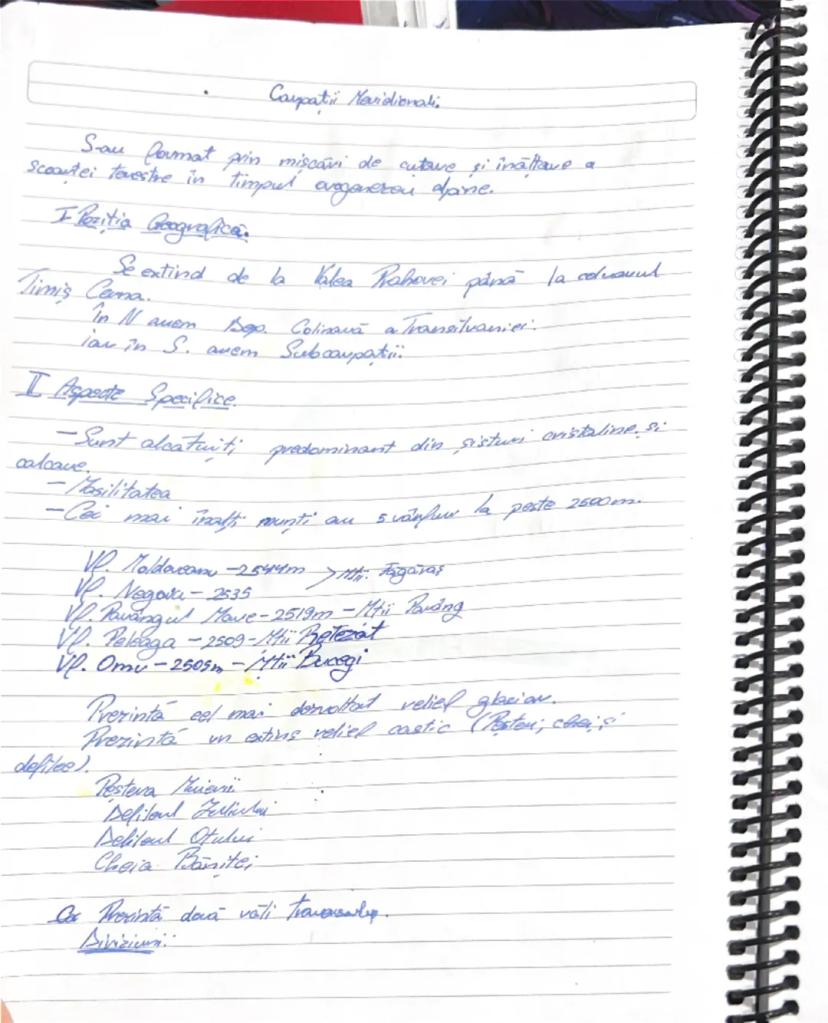 Carpații Meridionali.
S-au format prin mișcări de cutare și înălțare a
scoarței terestre în timpul orogenezei alpine.
I Poziția Geografică.
Se extind de la Valea Prahovei până la culoarul
Timiș Cerna.
În N avem Dep. Colinară a Transilvaniei.
iar în S. avem Subcarpații.
II Aspecte Specifice.
- Sunt alcătuiți predominant din șisturi cristaline și
calcare.
- Masivitatea
- Cei mai înalți munți au 5 vârfuri la peste 2500m.
Vf. Moldoveanu - 2544m > Mții. Făgăraș
Vf. Negoiu - 2535
Vf. Parângul Mare - 2519m - Mții Parâng
Vf. Peleaga - 2509 - Mții Retezat
Vf. Omu - 2505m - Mții Bucegi
Prezintă cel mai dezvoltat relief glaciar.
Prezintă un extins relief castic (Peșteri, chei, și
defilee).
Peștera Muierii
Defileul Jiului
Defileul Oltului
Cheia Băniței
Prezintă două văi transversale.
Diviziuni: